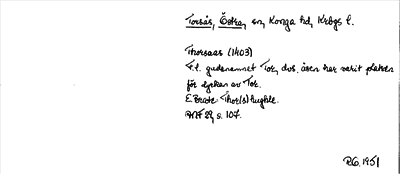 Torsås, Östra, sn, Konga hd, Krbgs l.
Thorsaas (1403)
F.l. gudanamnet Tor, dvs. åsen har varit platsen
för dyrkan av Tor.
E. Brate Thor(s)hughle.
ANF 29, s. 107.
RG. 1951